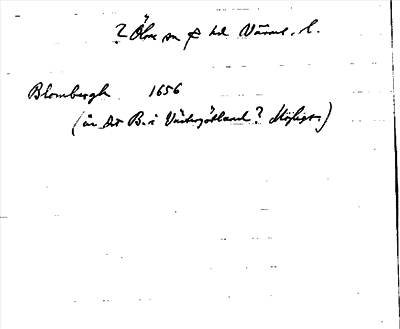 ? Ölme sn f hd Värml. l.
Blombergh 1656
(är det B. i Västergötland? Möjligt.)